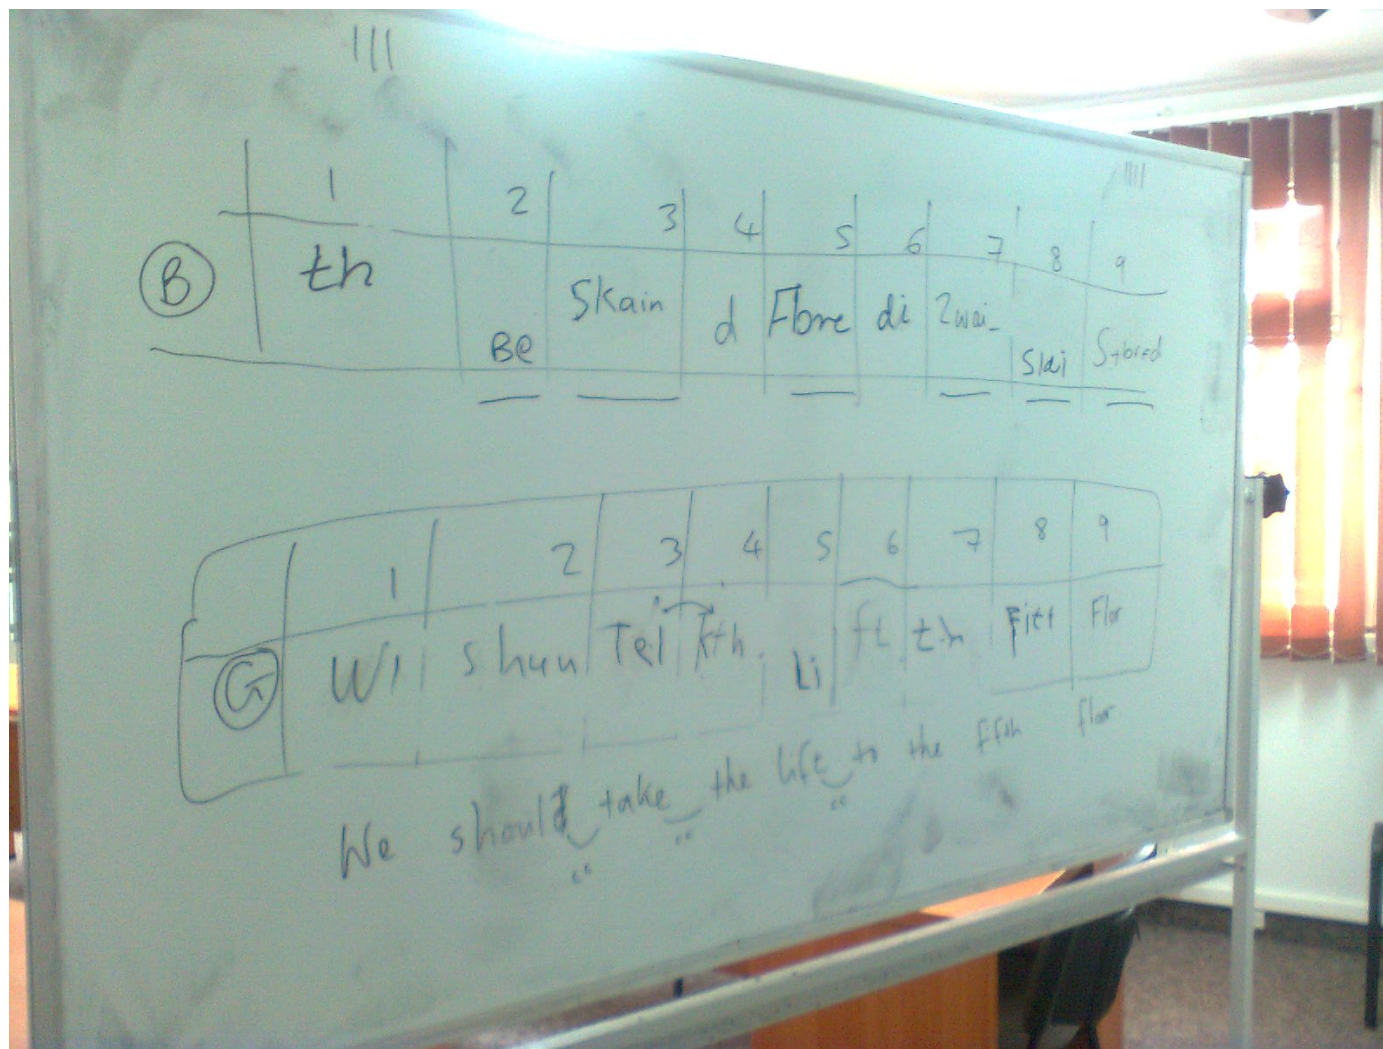 1 2 3 4 5 6 7 8 9
B th Be Skain d di Slai
1 2 3 4 5 6 7 8 9
G Wi shun Tei kth Li ft th Fitt Flor
We should take the lift to the fifth floor